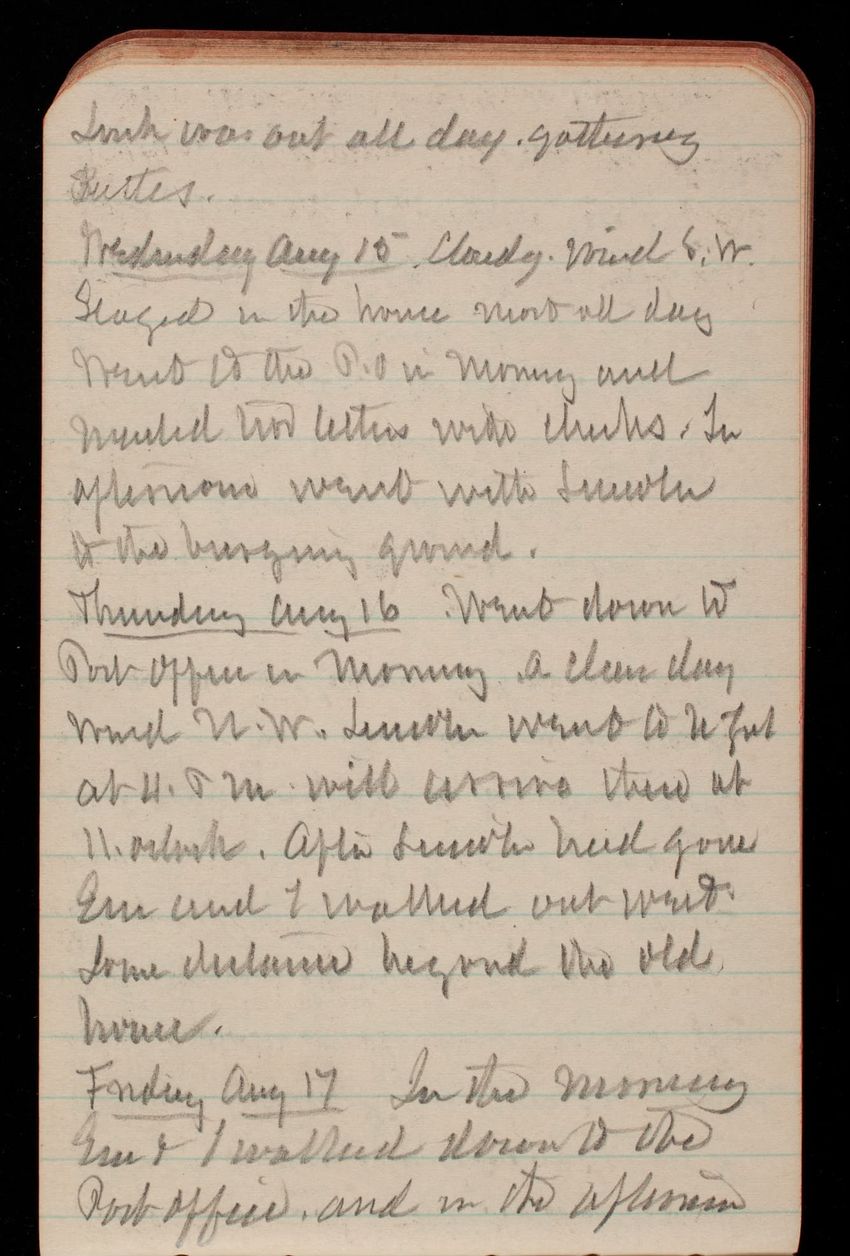 Link was out all day. gathering
Wednesday Aug 15. Cloudy. Wind S. W.
Stayed in the house most all day
Went to the P.O in Morning and
Mailed two letters with checks. In
afternoon went with Lincoln
to the burying ground.
Thursday Aug 16 Went down to
Post Office in Morning. a clear day
Wind N. W. Lincoln went to
at 4. P M will arrive there at
11. oclock. After Lincoln had gone
Em and I walked out west
Some distance beyond the old
house.
Friday Aug 17 In the Morning
Em & I walked down to the
Post Office. and in the afternoon